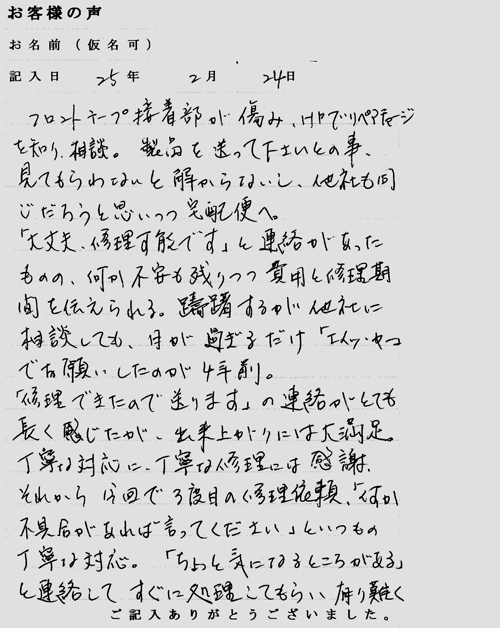 お客様の声
お名前（仮名可）
記入日 25年 2月 24日
フロントテープ接着部が傷み、HPでリペアティージ
を知り、相談。製品を送って下さいとの事、
見てもらわないと解からないし、他社も同
じだろうと思いつつ宅配便へ。
「大丈夫、修理可能です」と連絡があった
ものの、何か不安も残りつつ費用と修理期
間を伝えられる。躊躇するが他社に
相談しても、月が過ぎるだけ「エイッ・ヤッ」
でお願いしたのが4年前。
「修理できたので送ります」の連絡がとても
長く感じたが、出来上がりには大満足。
丁寧な対応に、丁寧な修理には感謝、
それから今回で3度目の修理依頼、「何か
不具合があれば言ってください」といつもの
丁寧な対応。「ちょっと気になるところがある」
と連絡してすぐに処理してもらい有り難く
ご記入ありがとうございました。